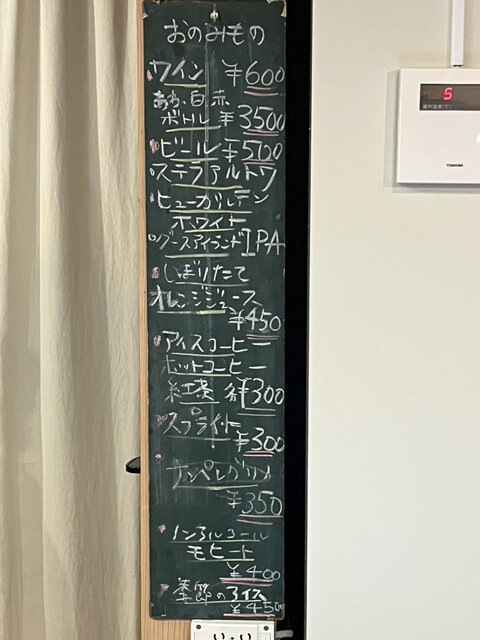 おのみもの
ワイン ¥600
あわ・白・赤
ボトル ¥3500
ビール ¥500
ステラアルトワ
ヒューガルデン
ホワイト
グースアイランドIPA
しぼりたて
オレンジジュース
¥450
アイスコーヒー
ホットコーヒー
紅茶 各¥300
スプライト
¥300
サンペレグリノ
¥350
ノンアルコール
モヒート
¥400
季節のアイス
¥450
5
TOSHIBA